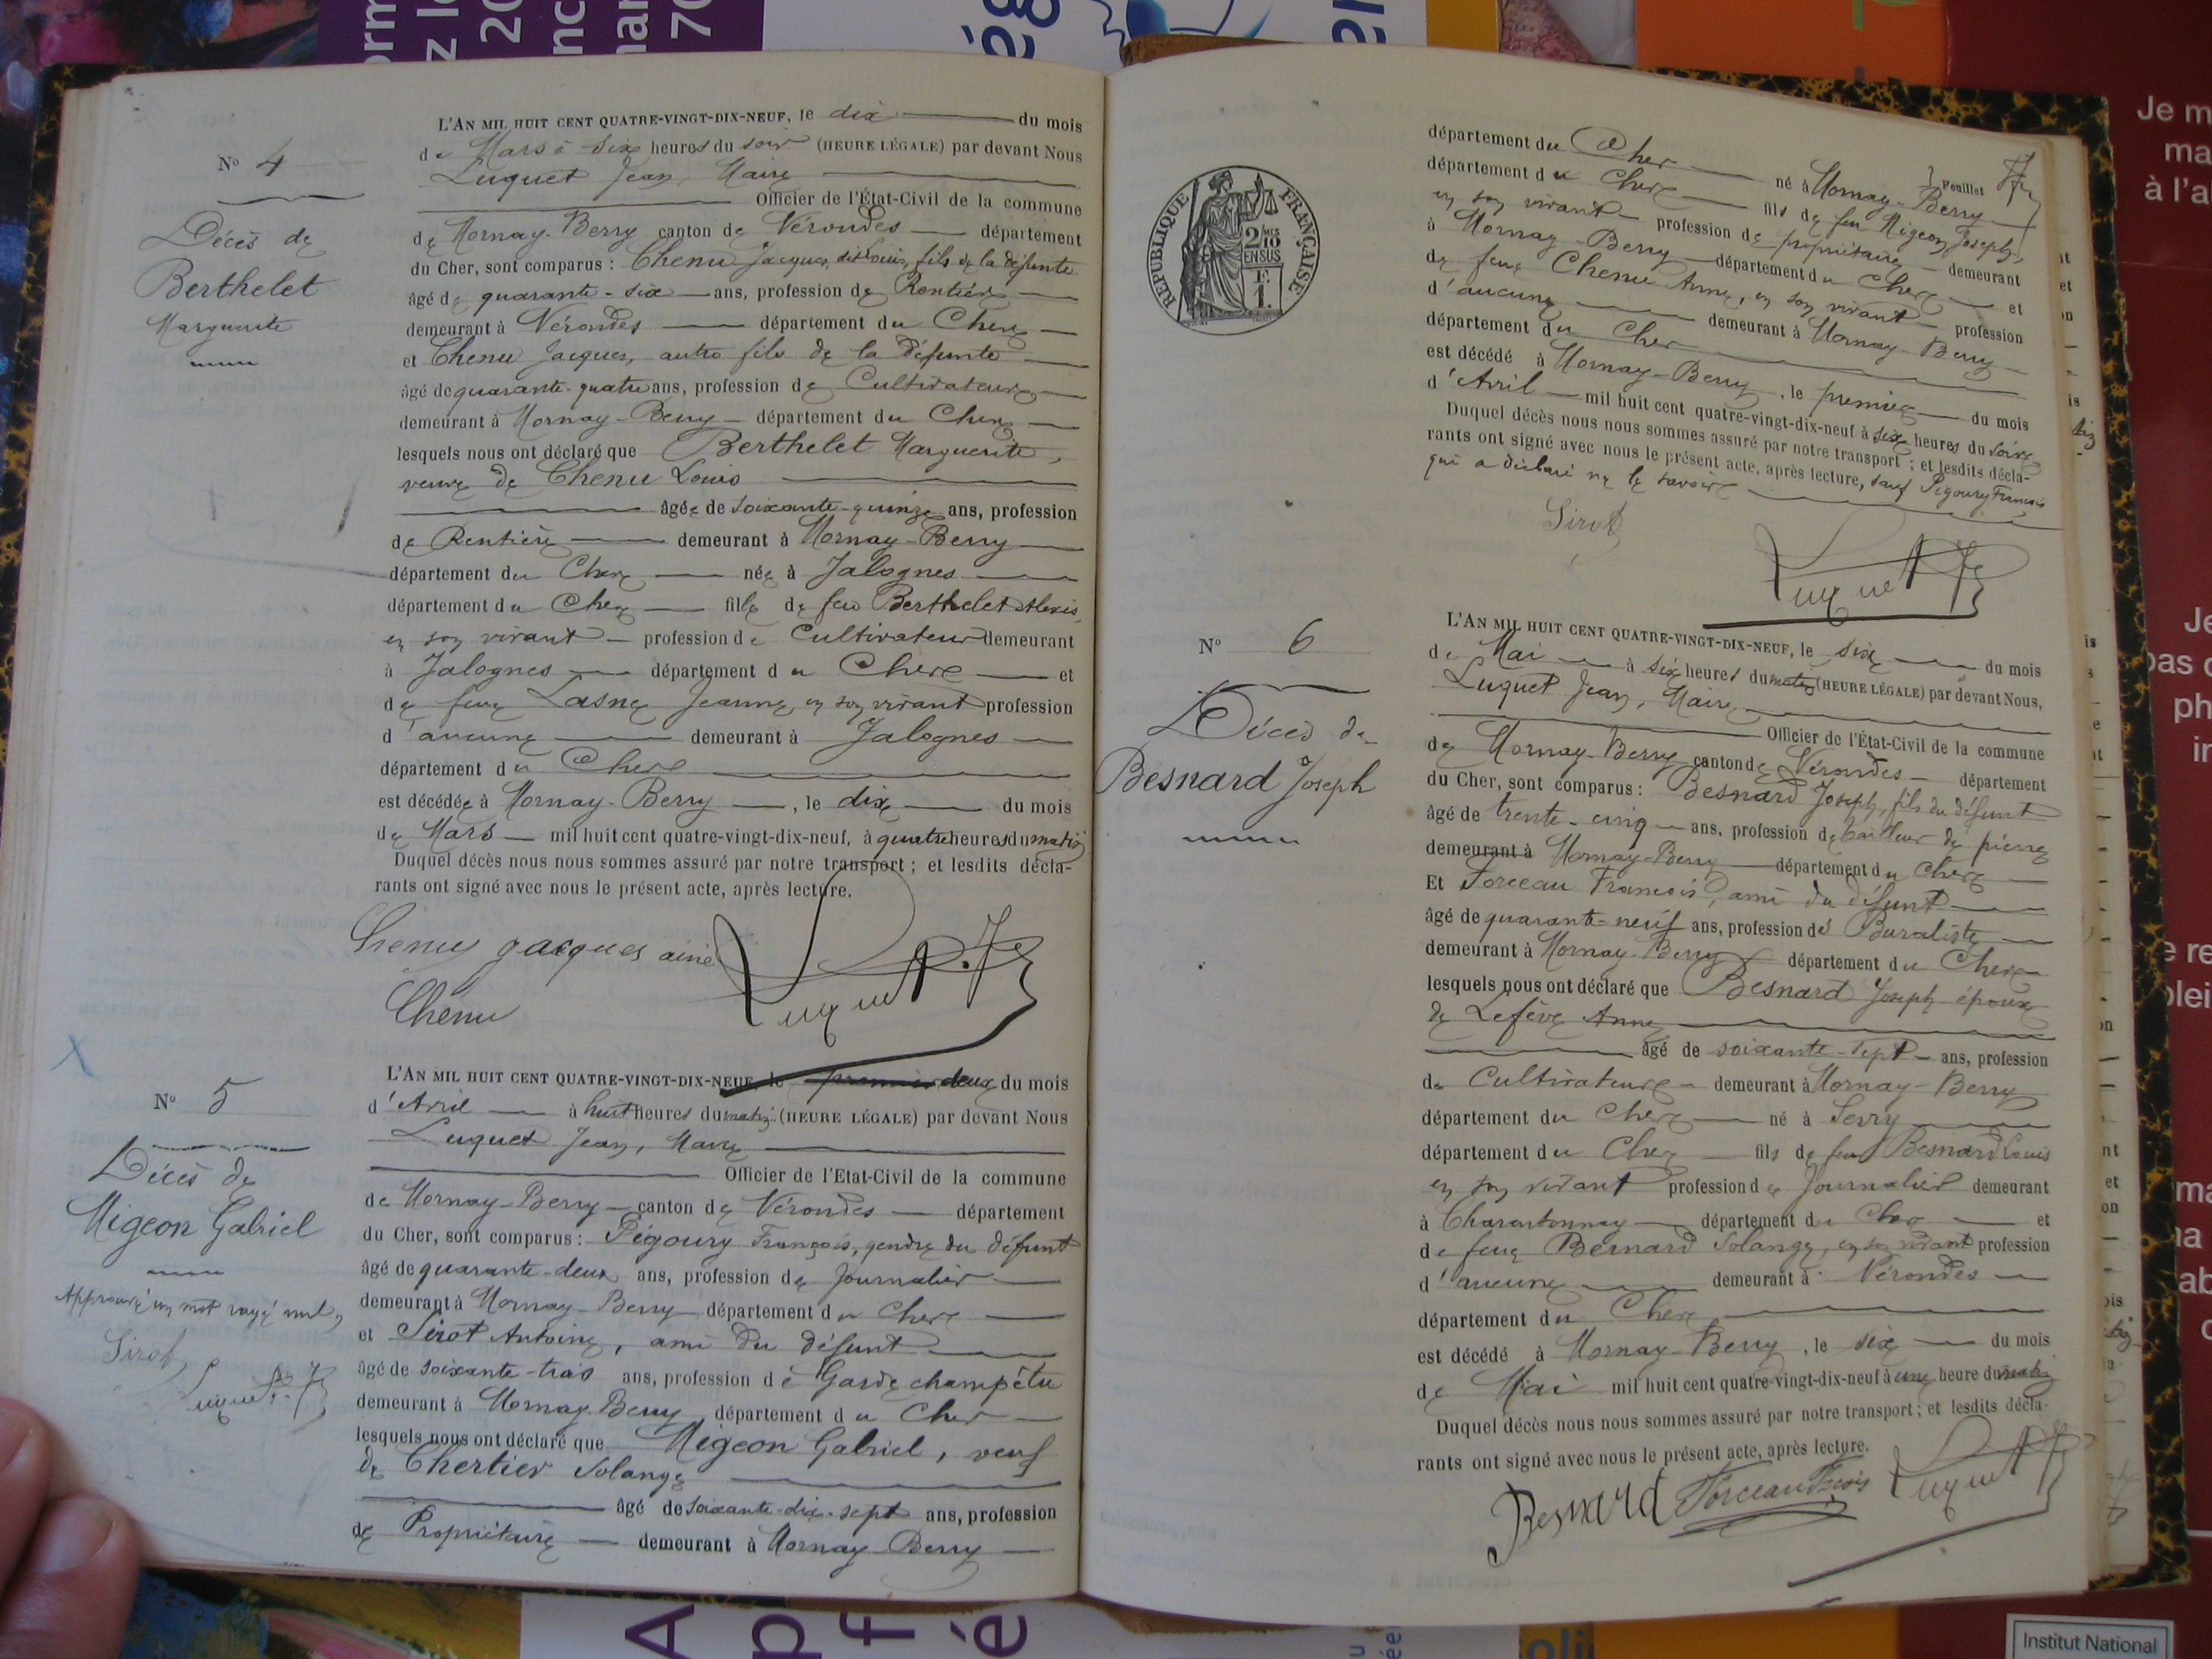 N° 4
Décès de
Berthelet
Marguerite
L'AN MIL HUIT CENT QUATRE-VINGT-DIX-NEUF, le dix du mois
de Mars à six heures du soir (HEURE LÉGALE) par devant Nous
Luquet Jean, Maire
Officier de l'État-Civil de la commune
de Mornay-Berry canton de Nérondes département
du Cher, sont comparus : Chenu Jacques, dit Louis, fils de la défunte
âgé de quarante-six ans, profession de Rentier
demeurant à Nérondes département du Cher
et Chenu Jacques, autre fils de la défunte
âgé de quarante-quatre ans, profession de Cultivateur
demeurant à Mornay-Berry département du Cher
lesquels nous ont déclaré que Berthelet Marguerite,
veuve de Chenu Louis
âgée de soixante-quinze ans, profession
de Rentière demeurant à Mornay-Berry
département du Cher née à Jalognes
département du Cher fille de feu Berthelet Alexis,
en son vivant profession de Cultivateur demeurant
à Jalognes département du Cher et
de feue Lasne Jeanne, en son vivant profession
d'aucune demeurant à Jalognes
département du Cher
est décédée à Mornay-Berry, le dix du mois
de Mars mil huit cent quatre-vingt-dix-neuf, à quatre heures du matin
Duquel décès nous nous sommes assuré par notre transport ; et lesdits décla-
rants ont signé avec nous le présent acte, après lecture.
Chenu jacques ainé
Chenu
Luquet
N° 5
Décès de
Migeon Gabriel
Approuvé un mot rayé nul,
Sirot
Luquet
L'AN MIL HUIT CENT QUATRE-VINGT-DIX-NEUF, le premier deux du mois
d'Avril à huit heures du matin (HEURE LÉGALE) par devant Nous
Luquet Jean, Maire
Officier de l'Etat-Civil de la commune
de Mornay-Berry canton de Nérondes département
du Cher, sont comparus : Pégoury François, gendre du défunt
âgé de quarante-deux ans, profession de Journalier
demeurant à Mornay-Berry département du Cher
et Sirot Antoine, ami du défunt
âgé de soixante-trois ans, profession de Garde champêtre
demeurant à Mornay-Berry département du Cher
lesquels nous ont déclaré que Migeon Gabriel, veuf
de Chertier Solange
âgé de soixante-dix-sept ans, profession
de Propriétaire demeurant à Mornay-Berry
REPUBLIQUE FRANÇAISE
2/10 MES
EN SUS
1 F.
Feuillet
département du Cher né à Mornay-Berry
département du Cher fils de feu Migeon Joseph,
en son vivant profession de propriétaire demeurant
à Mornay-Berry département du Cher et
de feue Chenu Anne, en son vivant profession
d'aucune demeurant à Mornay-Berry
département du Cher
est décédé à Mornay-Berry, le premier du mois
d'Avril mil huit cent quatre-vingt-dix-neuf à six heures du soir
Duquel décès nous nous sommes assuré par notre transport ; et lesdits décla-
rants ont signé avec nous le présent acte, après lecture, sauf Pégoury François
qui a déclaré ne le savoir
Sirot
Luquet
N° 6
Décès de
Besnard Joseph
L'AN MIL HUIT CENT QUATRE-VINGT-DIX-NEUF, le six du mois
de Mai à six heures du matin (HEURE LÉGALE) par devant Nous,
Luquet Jean, Maire
Officier de l'État-Civil de la commune
de Mornay-Berry canton de Nérondes département
du Cher, sont comparus : Besnard Joseph, fils du défunt
âgé de trente-cinq ans, profession de tailleur de pierre
demeurant à Mornay-Berry département du Cher
Et Forceau François, ami du défunt
âgé de quarante-neuf ans, profession de Buraliste
demeurant à Mornay-Berry département du Cher
lesquels nous ont déclaré que Besnard Joseph époux
de Lefève Anne
âgé de soixante-sept ans, profession
de Cultivateur demeurant à Mornay-Berry
département du Cher né à Sevry
département du Cher fils de feu Besnard Louis
en son vivant profession de Journalier demeurant
à Charentonnay département du Cher et
de feue Bernard Solange, en son vivant profession
d'aucune demeurant à Nérondes
département du Cher
est décédé à Mornay-Berry, le six du mois
de Mai mil huit cent quatre-vingt-dix-neuf à une heure du matin
Duquel décès nous nous sommes assuré par notre transport ; et lesdits décla-
rants ont signé avec nous le présent acte, après lecture.
Besnard Forceau Fçois Luquet
Institut National